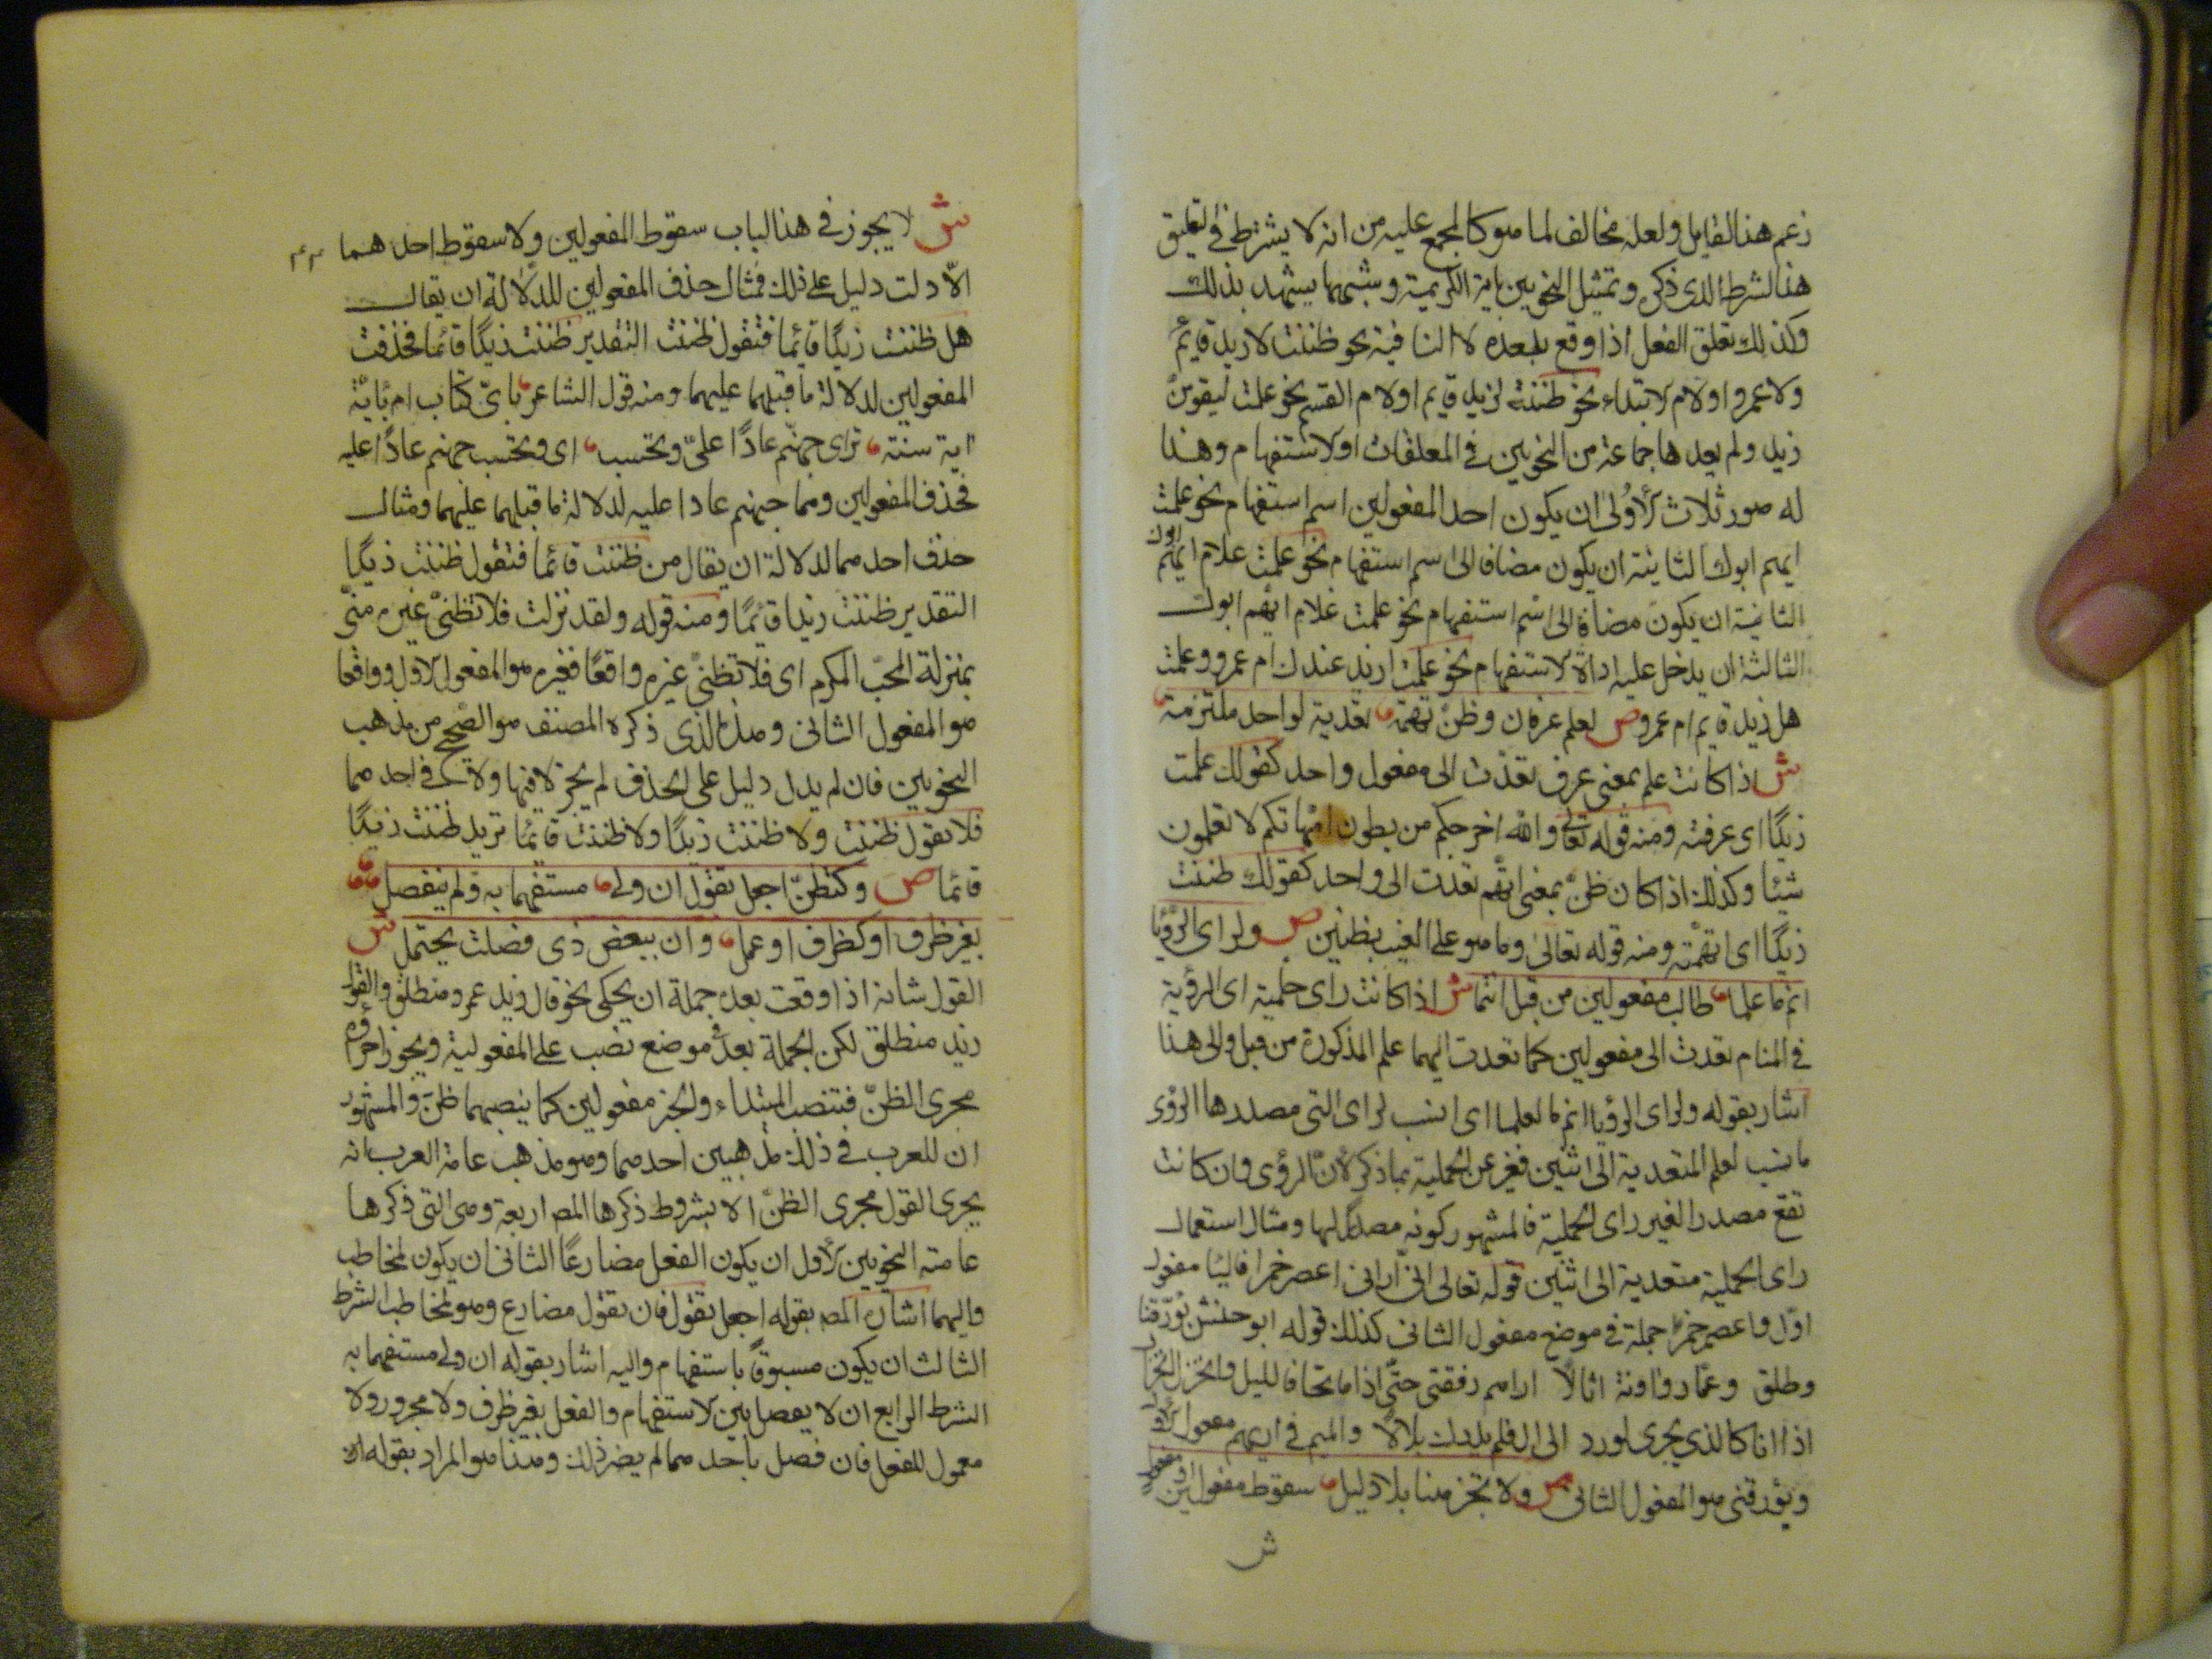 زعم هذا القايل ولعله مخالف لما هو كالمجمع عليه من انه لا يشترط في التعليق
هذا الشرط الذى ذكر وتمثيل النحويين باية الكريمة وشبهها يشهد بذلك
وكذلك تعلق الفعل اذا وقع بعده لا النافية نحو ظننت لا زيد قايم
ولا عمرو او لام لابتداء نحو ظننت لزيد قايم او لام القسم نحو علمت ليقومن
زيد ولم يعدها جماعة من النحويين في المعلقات اولاستفهام وهذا
له صور ثلاث لأولى ان يكون احد المفعولين اسم استفهام نحو علمت
ايهم ابوك الثانية ان يكون مضافا الى اسم استفهام نحو علمت غلام ايهم ابوك
الثانية ان يكون مضافا الى اسم استفهام نحو علمت غلام ايهم ابوك
الثالثة ان يدخل عليه اداة لاستفهام نحو علمت ازيد عندك ام عمرو وعلمت
هل زيد قايم ام عمرو ص لعلم عرفان وظن تهمة تعدية لواحد ملتزمة
ش اذا كانت علم بمعنى عرف تعدت الى مفعول واحد كقولك علمت
زيدًا اى عرفته ومنه قوله تعالى والله اخرجكم من بطون امهاتكم لا تعلمون
شيئا وكذلك اذا كان ظن بمعنى اتهم تعدت الى واحد كقولك ظننت
زيدًا اى اتهمته ومنه قوله تعالى وما هو على الغيب بظنين ص ولراى الرؤيا
انم ما علما طالب مفعولين من قبل انتما ش اذا كانت راى حلمية اى الرؤية
في المنام تعدت الى مفعولين كما تعدت اليهما علم المذكورة من قبل والى هذا
اشار بقوله ولراى الرؤيا انم ما لعلما اى انسب لراى التى مصدرها الرؤى
ما ينسب لعلم المتعدية الى اثنين فعبر عن الحلمية بما ذكر لأن الرؤى وان كانت
تقع مصدر الغير راى الحلمية فالمشهور كونه مصدرًا لها ومثال استعمال
راى الحلمية متعدية الى اثنين قوله تعالى انى أرانى اعصر خمرا فاليا مفعول
اول واعصر خمرا جملة في موضع مفعول الثانى كذلك قوله ابو حنش يؤرقنا
وطلق وعمار واونة اثالا اراهم رفقتى حتى اذا ما تجافا لليل وانخزل انخزال
اذا انا كالذي يجرى لورد الى ال فلم يدرك بلالا والميم في اريهم مفعول لأول
ويؤرقنى هو المفعول الثانى ص ولا تجز هنا بلا دليل سقوط مفعولين او مفعول
ش
ش لا يجوز في هذا لباب سقوط المفعولين ولا سقوط احدهما
الّا دلت دليل على ذلك فمثال حذف المفعولين للدلالة ان يقال
هل ظننت زيدًا قائما فتقول ظننت التقدير ظننت زيدًا قائما فحذفت
المفعولين لدلالة ما قبلهما عليهما ومنه قول الشاعر بائ كتاب ام باية
اية سنة ترى حبهم عارًا علىّ وتحسب اى وتحسب حبهم عارًا عليه
فحذف المفعولين وهما حبهم عارا عليه لدلالة ما قبلهما عليهما ومثال
حذف احدهما لدلالة ان يقال من ظننت قائما فتقول ظننت زيدًا
التقدير ظننت زيدا قائمًا ومنه قوله ولقد نزلت فلا تظنى غيره منّى
بمنزلة المحبّ المكرم اى فلا تظنى غيره واقعًا فغيره هو المفعول لأول وواقعا
هو المفعول الثانى وهذا الذى ذكره المصنف هو الصحيح من مذهب
النحويين فان لم يدل دليل على الحذف لم يجز لا فيهما ولا في احدهما
فلا تقول ظننت ولا ظننت زيدًا ولا ظننت قائما تريد ظننت زيدًا
قائما ص وكتظنّ اجعل تقول ان ولى مستفهما به ولم ينفصل
بغير ظرف او كظرف او عمل وان ببعض ذى فصلت يحتمل ش
القول شانه اذا وقعت بعده جملة ان يحكى نحو قال زيد عمرو منطلق وتقول
زيد منطلق لكن الجملة بعده موضع نصب على المفعولية ويجوز اجراؤه
مجرى الظنّ فتنصب المبتداء والخبر مفعولين كما ينصبهما ظنّ والمشهور
ان للعرب في ذلك مذهبين احدهما وهو مذهب عامة العرب انه
يجرى القول مجرى الظنّ الا بشروط ذكرها المص اربعة وهى التى ذكرها
عامته النحويين لأول ان يكون الفعل مضارعًا الثانى ان يكون لمخاطب
واليهما اشاره المص بقوله اجعل تقول فان تقول مضارع وهو لمخاطب الشرط
الثالث ان يكون مسبوقًا باستفهام واليه اشار بقوله ان ولى مستفهما به
الشرط الرابع ان لا يفصل بين لاستفهام والفعل بغير ظرف ولا مجرور ولا
معمول للفعل فان فصل باحدهما لم يضر ذلك وهذا هو المراد بقوله